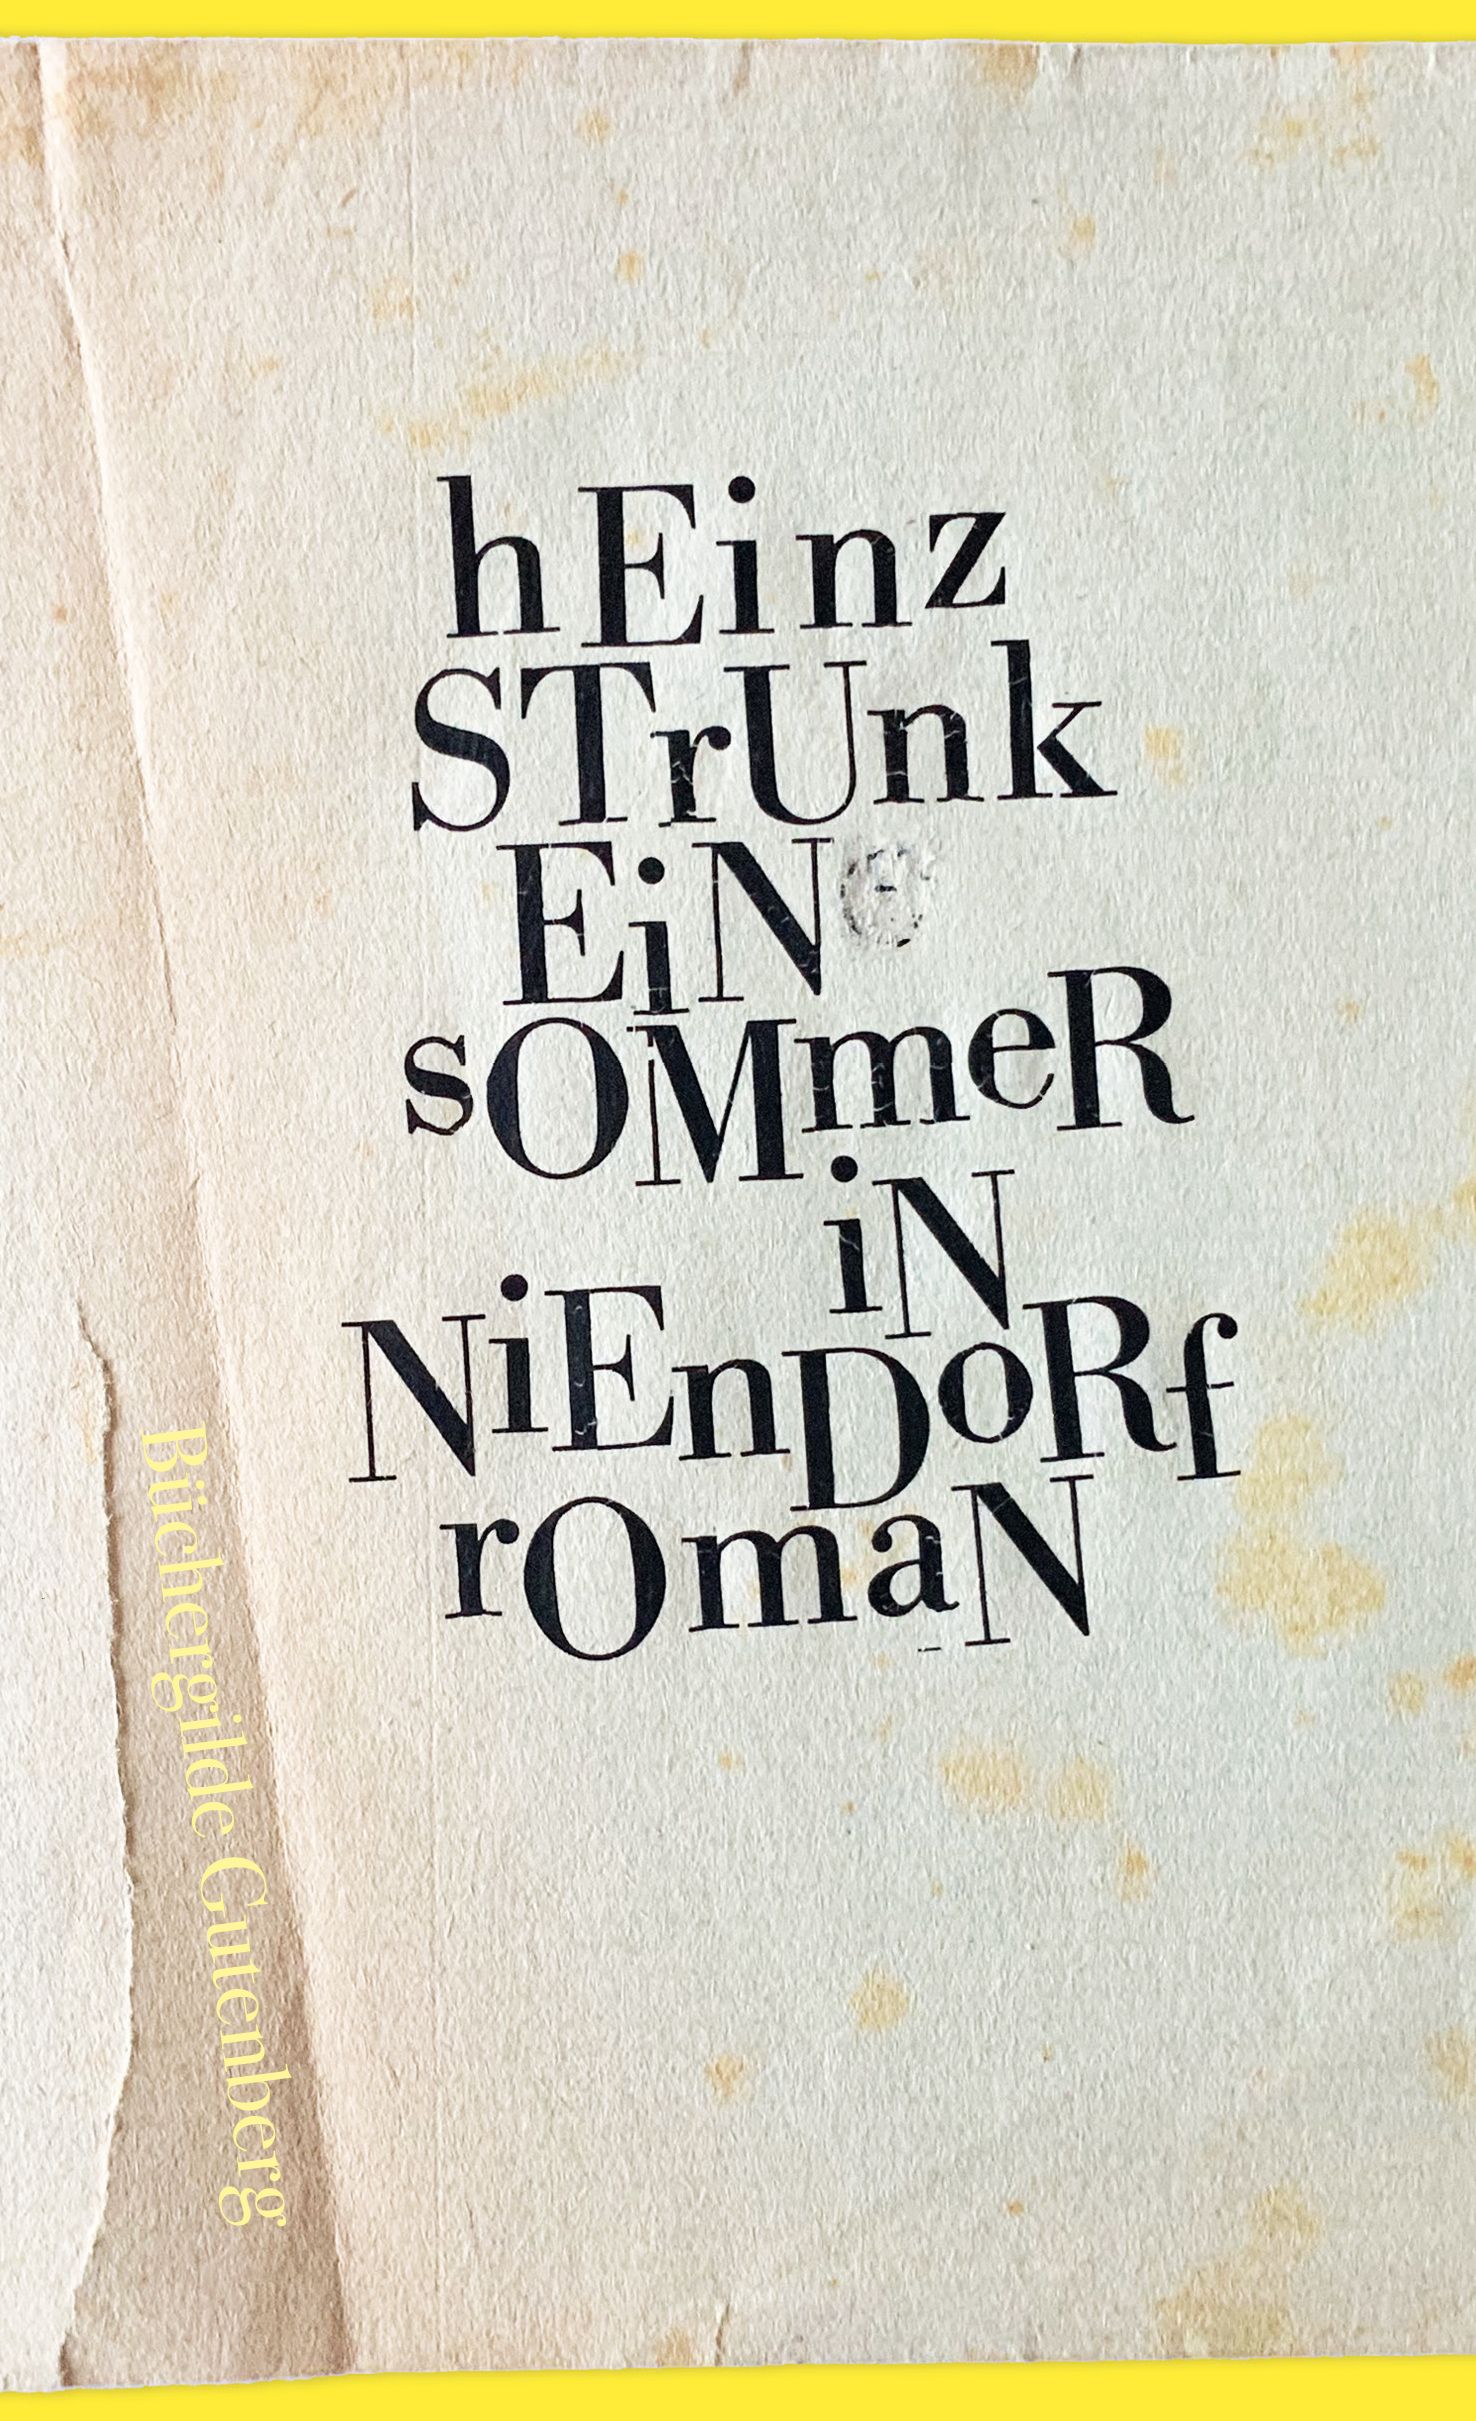 hEinz
STrUnk
EiN
sOMmeR
iN
NiEnDoRf
rOmaN
Büchergilde Gutenberg